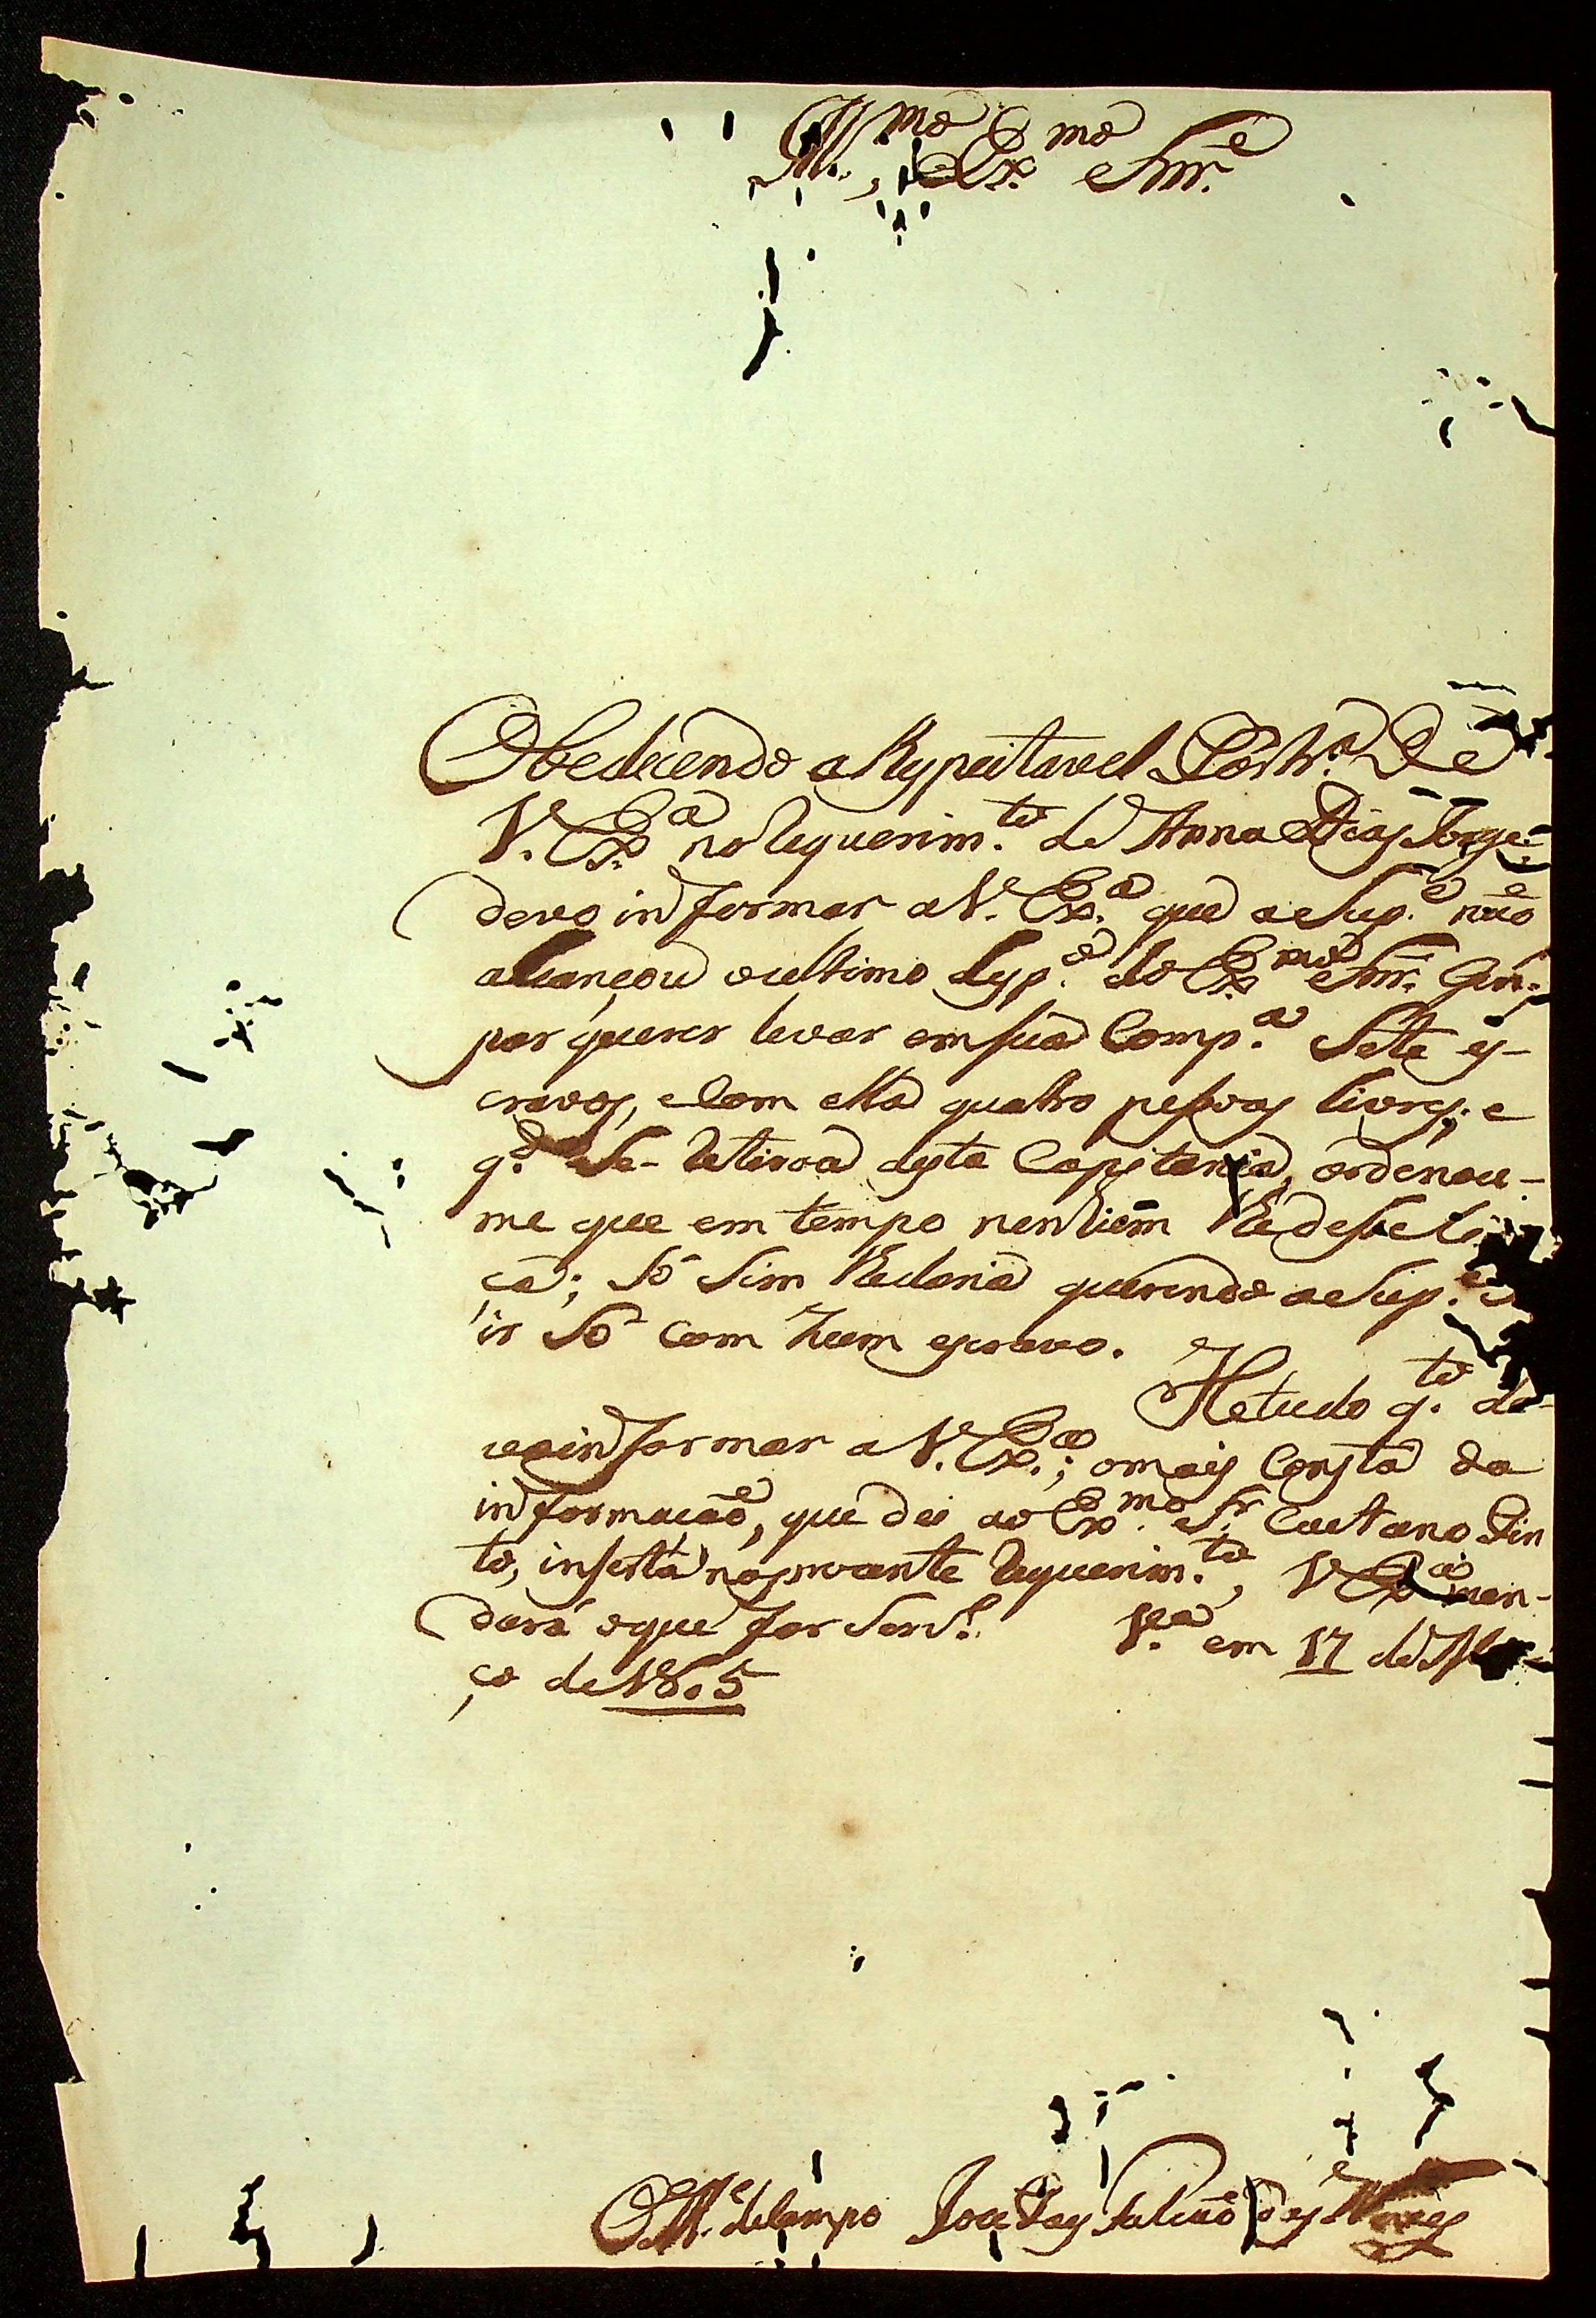 Ill.mo, e Ex.mo Snr.e
Obedecendo a Respeitavel Portr.a De
V. Ex.a no Requerim.to de Anna Dias Jorge
devo informar a V. Ex.a que a Sup.e não
alcançou o ultimo Desp.o do Ex.mo Snr. Gen.
por querer levar em sua Comp.a Sete es-
cravos, e Com ella quatro pessoas livres; e
q.do Se-Retirou desta Capitania, ordenou-
me que em tempo nenhum
ca; Só Sim querendo a Sup.e
ir Só com hum escravo.
He tudo q.to de-
vo informar a V. Ex.a; o mais Consta da
informação, que dei ao Ex.mo Sr. Caetano Pin
to, inserta no prezente Requerim.to, V. Ex.a man-
dará o que for Serv.
V.a em 17 de Mar-
ço de 1805
O M.e de Campo Joze Paes Falcão das Neves